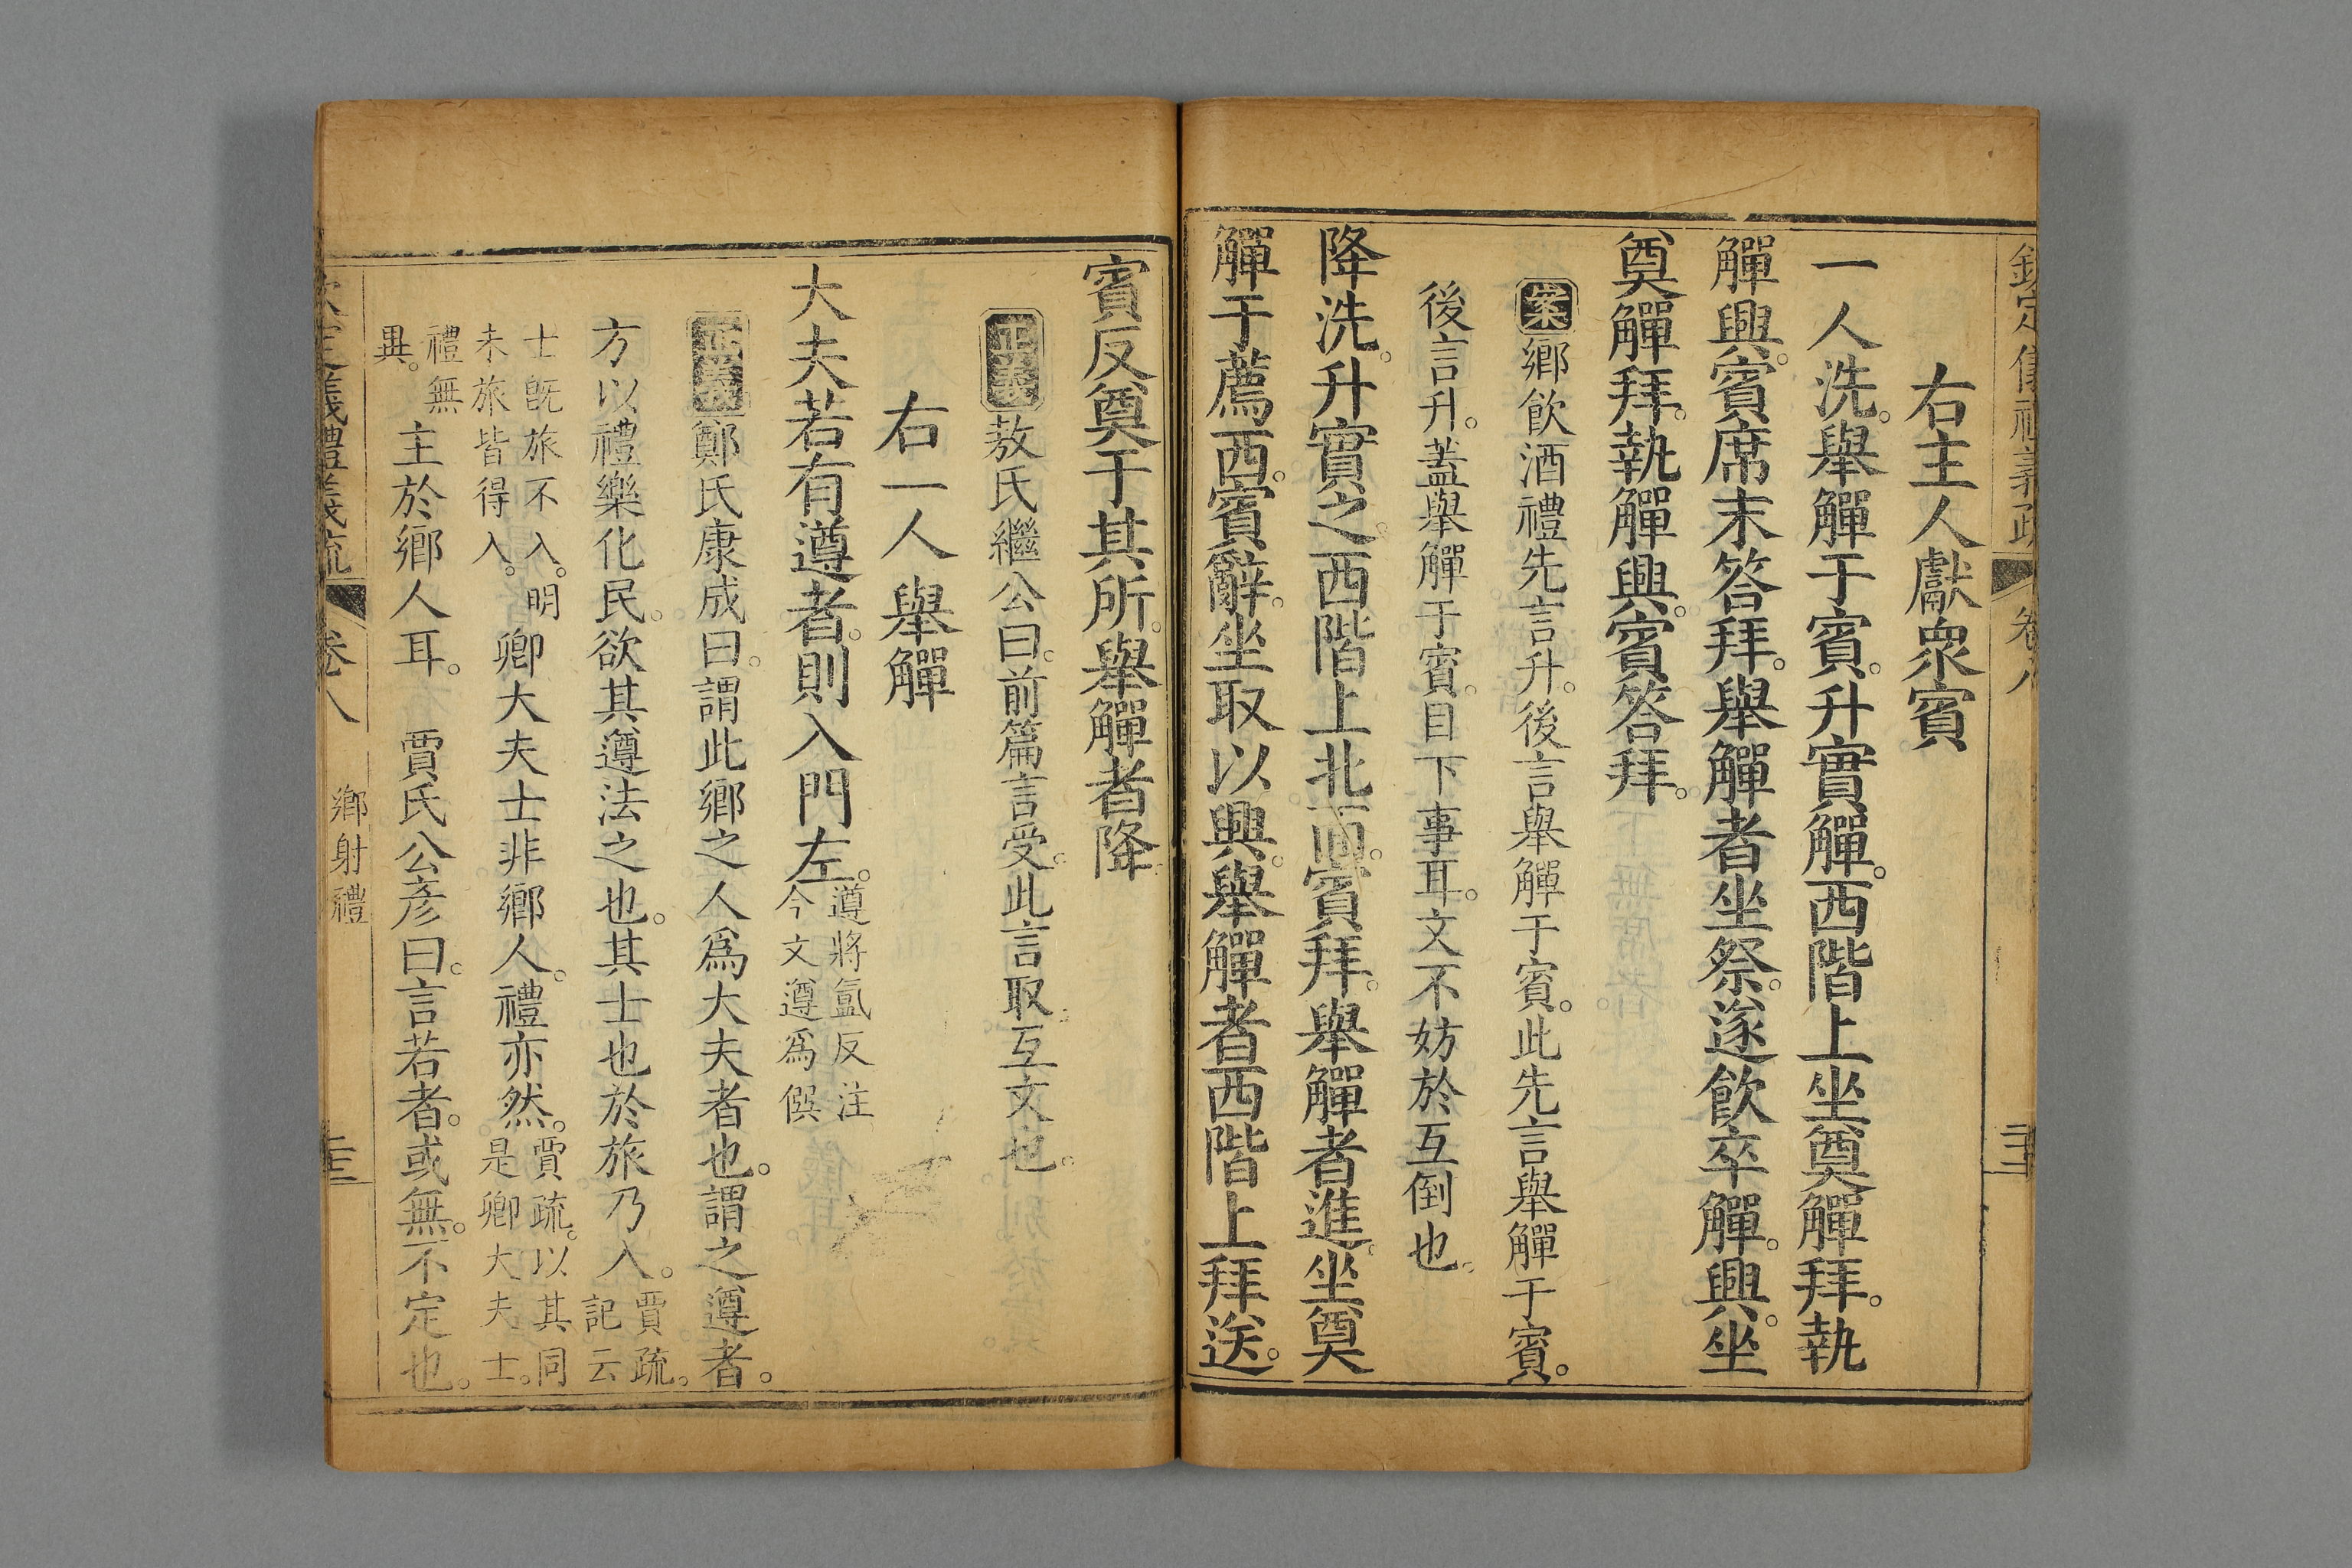 右主人獻衆賓
一人洗。舉觶于賓。升實觶。西階上坐奠觶拜。執
觶興。賓席末答拜。舉觶者坐祭。遂飲卒觶。興。坐
奠觶拜。執觶興。賓答拜。
案鄉飲酒禮先言升。後言舉觶于賓。此先言舉觶于賓。
後言升。蓋舉觶于賓。目下事耳。文不妨於互倒也。
降洗。升實之。西階上北面。賓拜。舉觶者進。坐奠
觶于薦西。賓辭。坐取以興。舉觶者西階上拜送。
賓反奠于其所。舉觶者降
正義敖氏繼公曰。前篇言受。此言取。互文也。
右一人舉觶
大夫若有遵者。則入門左。遵將氳反注
今文遵爲僎
正義鄭氏康成曰。謂此鄉之人爲大夫者也。謂之遵者。
方以禮樂化民。欲其遵法之也。其士也於旅乃入。賈疏。
記云
士旣旅不入。明
未旅皆得入。
卿大夫士非鄉人。禮亦然。賈疏。以其同
是卿大夫士。
禮無
異。
主於鄉人耳。 賈氏公彥曰。言若者。或無。不定也。
卷八 鄉射禮